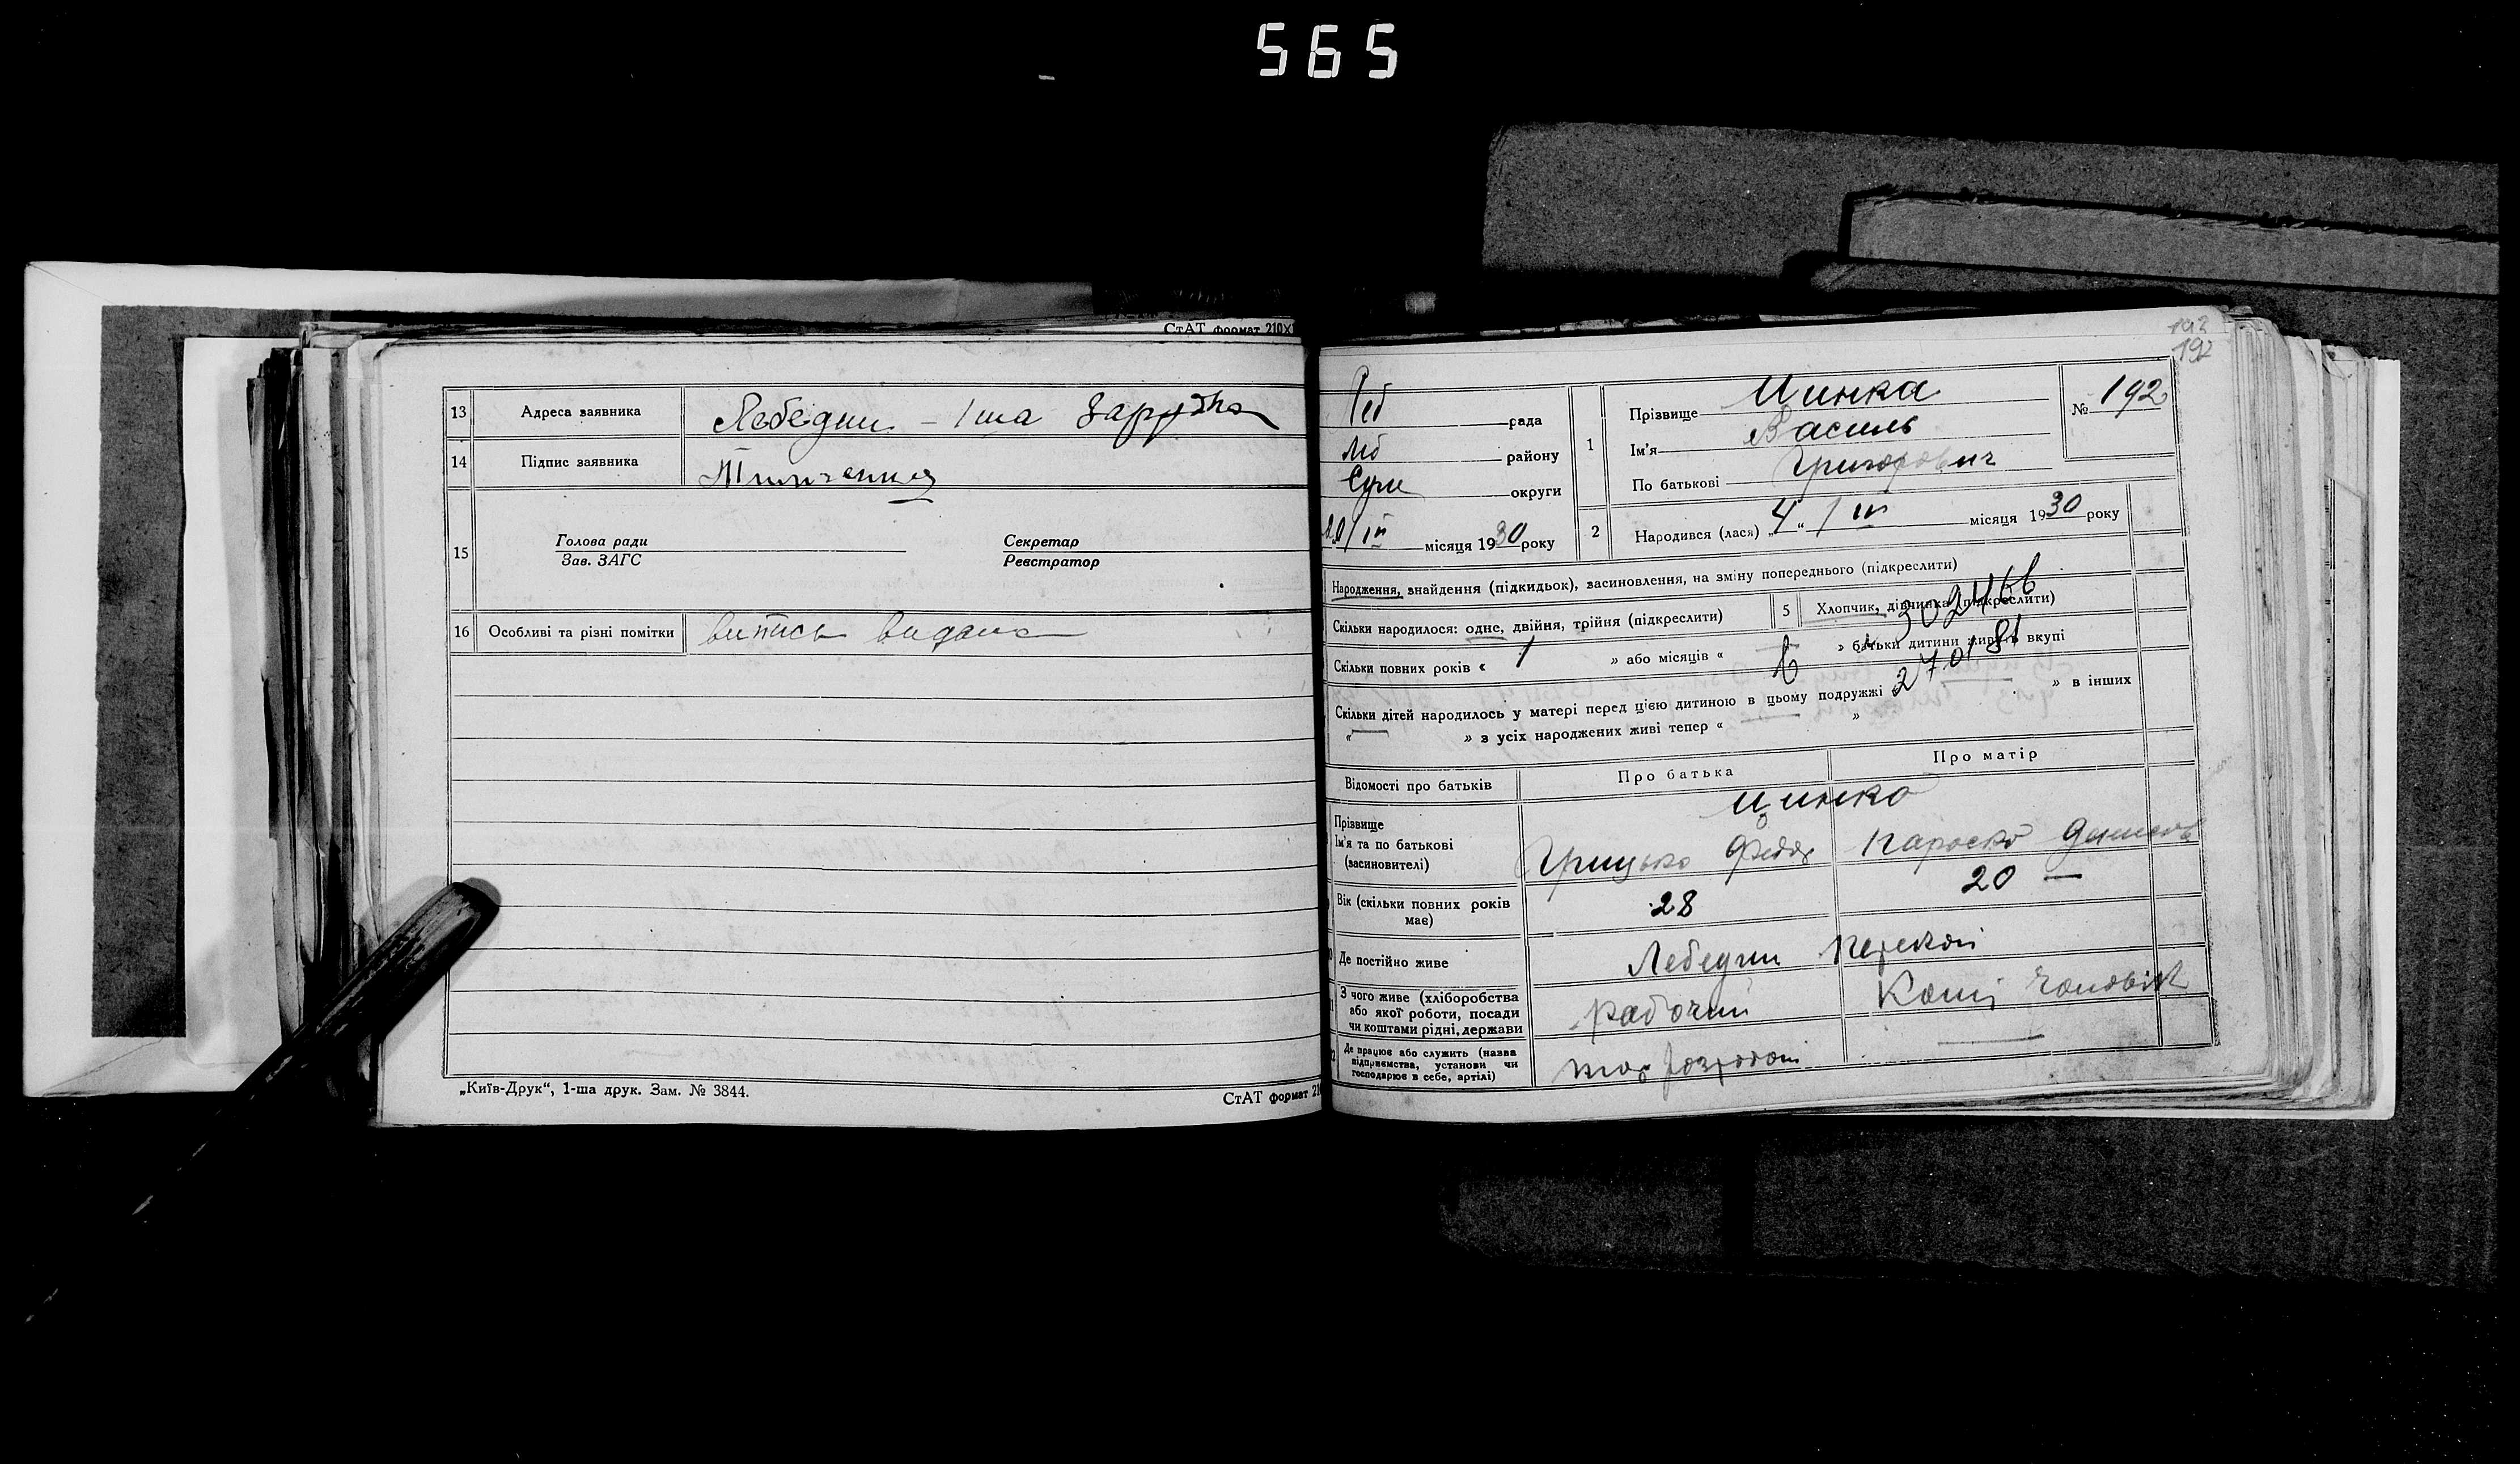 565
СтАТ формат 210X
13 Адреса заявника Лебедин - 1 ша Заружна
14 Підпис заявника
15 Голова ради Секретар
Зав. ЗАГС Реєстратор
16 Особливі та різні помітки випись видана
„Київ-Друк“, 1-ша друк. Зам. № 3844.
СтАТ формат 21
192
192
Леб рада
Леб району
Суми округи
20/III місяця 1930 року
1 Прізвище Цинка
№ 192
Ім'я Василь
По батькові Григорович
2 Народився (лася) „4“ / III місяця 1930 року
Народження, знайдення (підкидьок), засиновлення, на зміну попереднього (підкреслити)
Скільки народилося: одне, двійня, трійня (підкреслити) 5 Хлопчик, дівчинка (підкреслити)
302466
Скільки повних років « 1 » або місяців « — » батьки дитини живуть вкупі
270181
Скільки дітей народилось у матері перед цією дитиною в цьому подружжі « » в інших
« — » з усіх народжених живі тепер « — »
Відомості про батьків Про батька Про матір
Прізвище
Ім'я та по батькові
(засиновителі)
Цинка
Грицько Федор Параска Денисов
Вік (скільки повних років має) 28 20 —
Де постійно живе Лебедин
З чого живе (хліборобства або якої роботи, посади чи коштами рідні, держави рабочий Кошт чоловіка
Де працює або служить (назва підприємства, установи чи господарює в себе, артілі) —